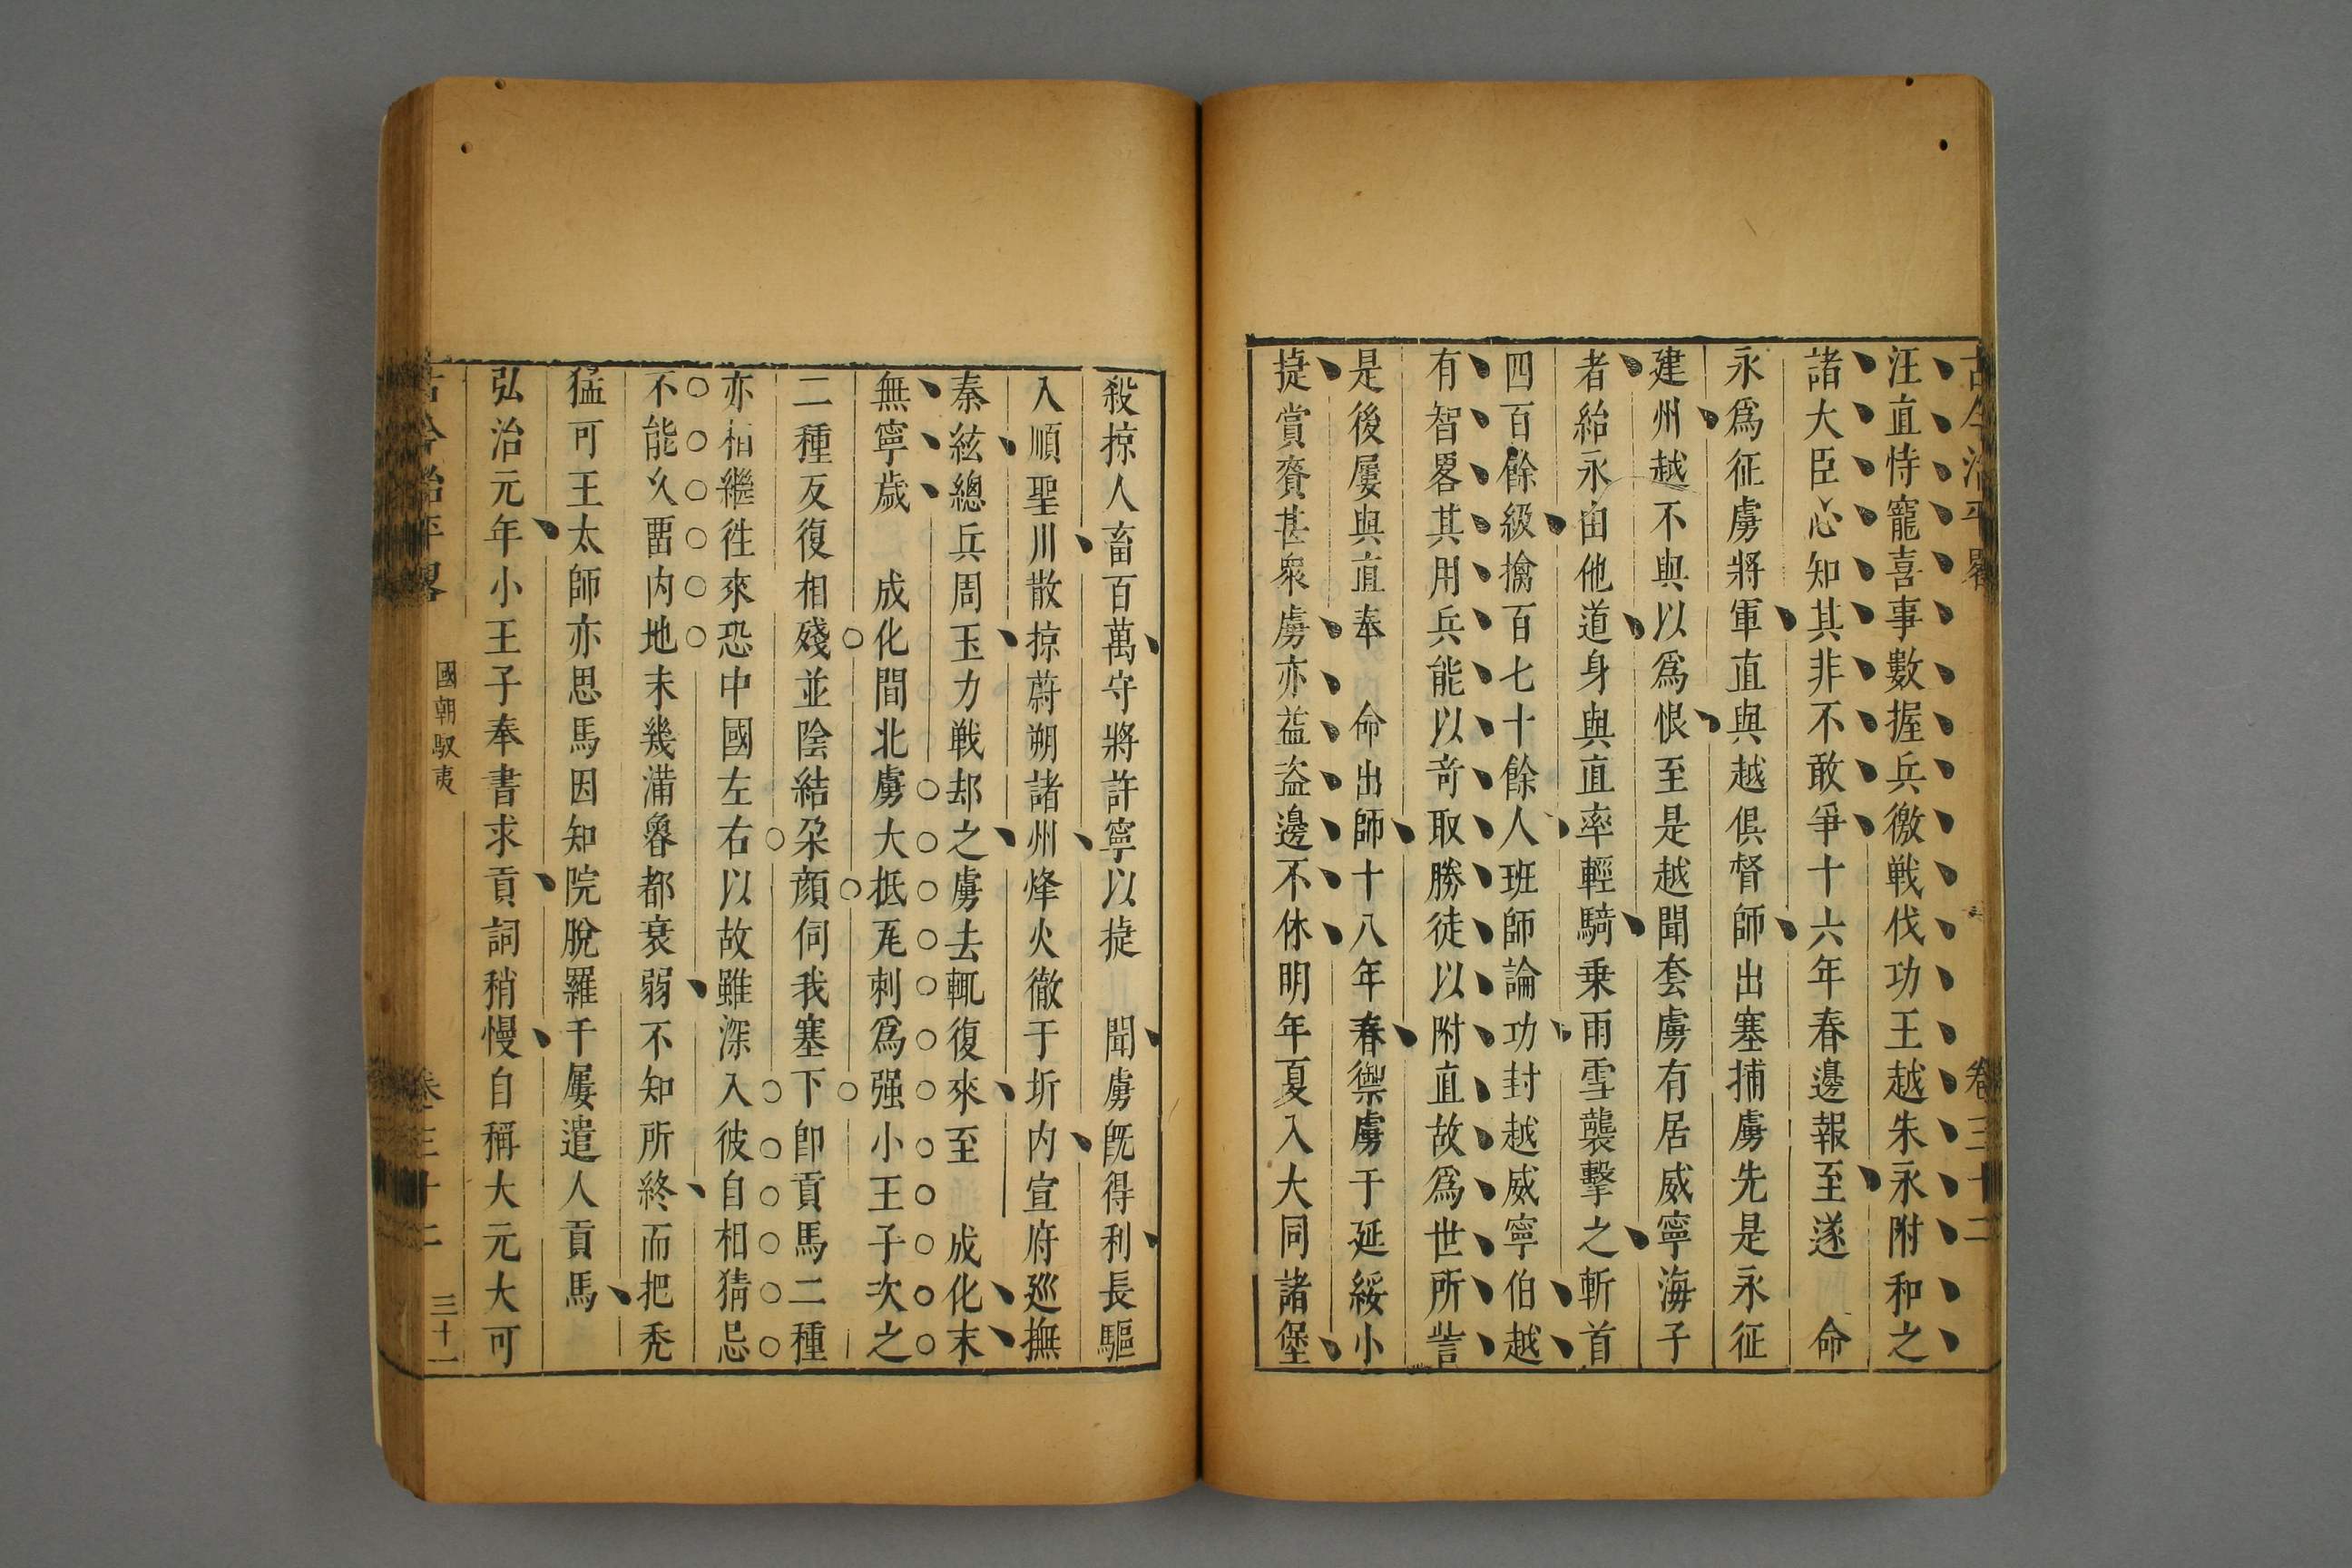 古今治平畧 卷三十二
汪直恃寵喜事數握兵徼戰伐功王越朱永附和之
諸大臣心知其非不敢爭十六年春邊報至遂 命
永爲征虜將軍直與越俱督師出塞捕虜先是永征
建州越不與以爲恨至是越聞套虜有居威寧海子
者紿永由他道身與直率輕騎乗雨雪襲擊之斬首
四百餘級擒百七十餘人班師論功封越威寧伯越
有智畧其用兵能以竒取勝徒以附直故爲世所訾
是後屢與直奉 命出師十八年春禦虜于延綏小
捷賞賚甚衆虜亦益盗邊不休明年夏入大同諸堡
殺掠人畜百萬守將許寧以捷 聞虜旣得利長驅
入順聖川散掠蔚朔諸州烽火徹于圻内宣府廵撫
秦紘總兵周玉力戰却之虜去輒復來至 成化末
無寧歲 成化間北虜大抵瓦刺爲强小王子次之
二種反復相殘並陰結朶顔伺我塞下卽貢馬二種
亦相繼徃來恐中國左右以故雖深入彼自相猜忌
不能久畱内地未幾滿魯都衰弱不知所終而把秃
猛可王太師亦思馬因知院脫羅千屢遣人貢馬
弘治元年小王子奉書求貢詞稍慢自稱大元大可
古今治平畧 國朝馭夷 卷三十二 三十一